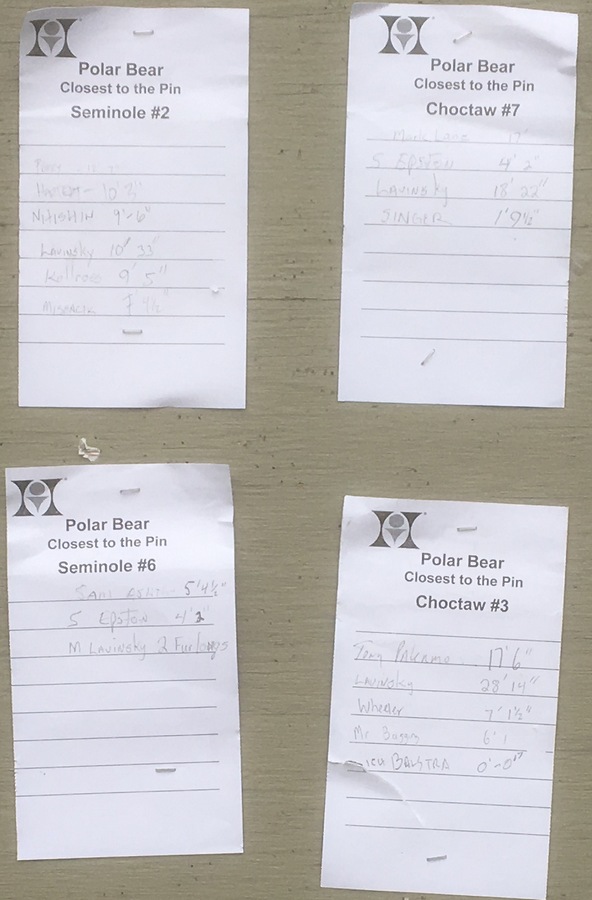 Polar Bear
Closest to the Pin
Seminole #2
10' 2"
NHISHIN 9'-6"
Lavinsky 10' 33"
Kellross 9' 5"
7' 4½"
Polar Bear
Closest to the Pin
Choctaw #7
Mark Lane 17'
S EPSTEIN 4' 2"
LAVINSKY 18' 22"
SINGER 1' 9½"
Polar Bear
Closest to the Pin
Seminole #6
SAM 5' 4½"
S EPSTEIN 4' 2"
M Lavinsky 2 Furlongs
Polar Bear
Closest to the Pin
Choctaw #3
Tony Palermo 17' 6"
LAVINSKY 28' 14"
Wheeler 7' 1½"
Mr Boggy 6' 1
BALSTRA 0'-0"